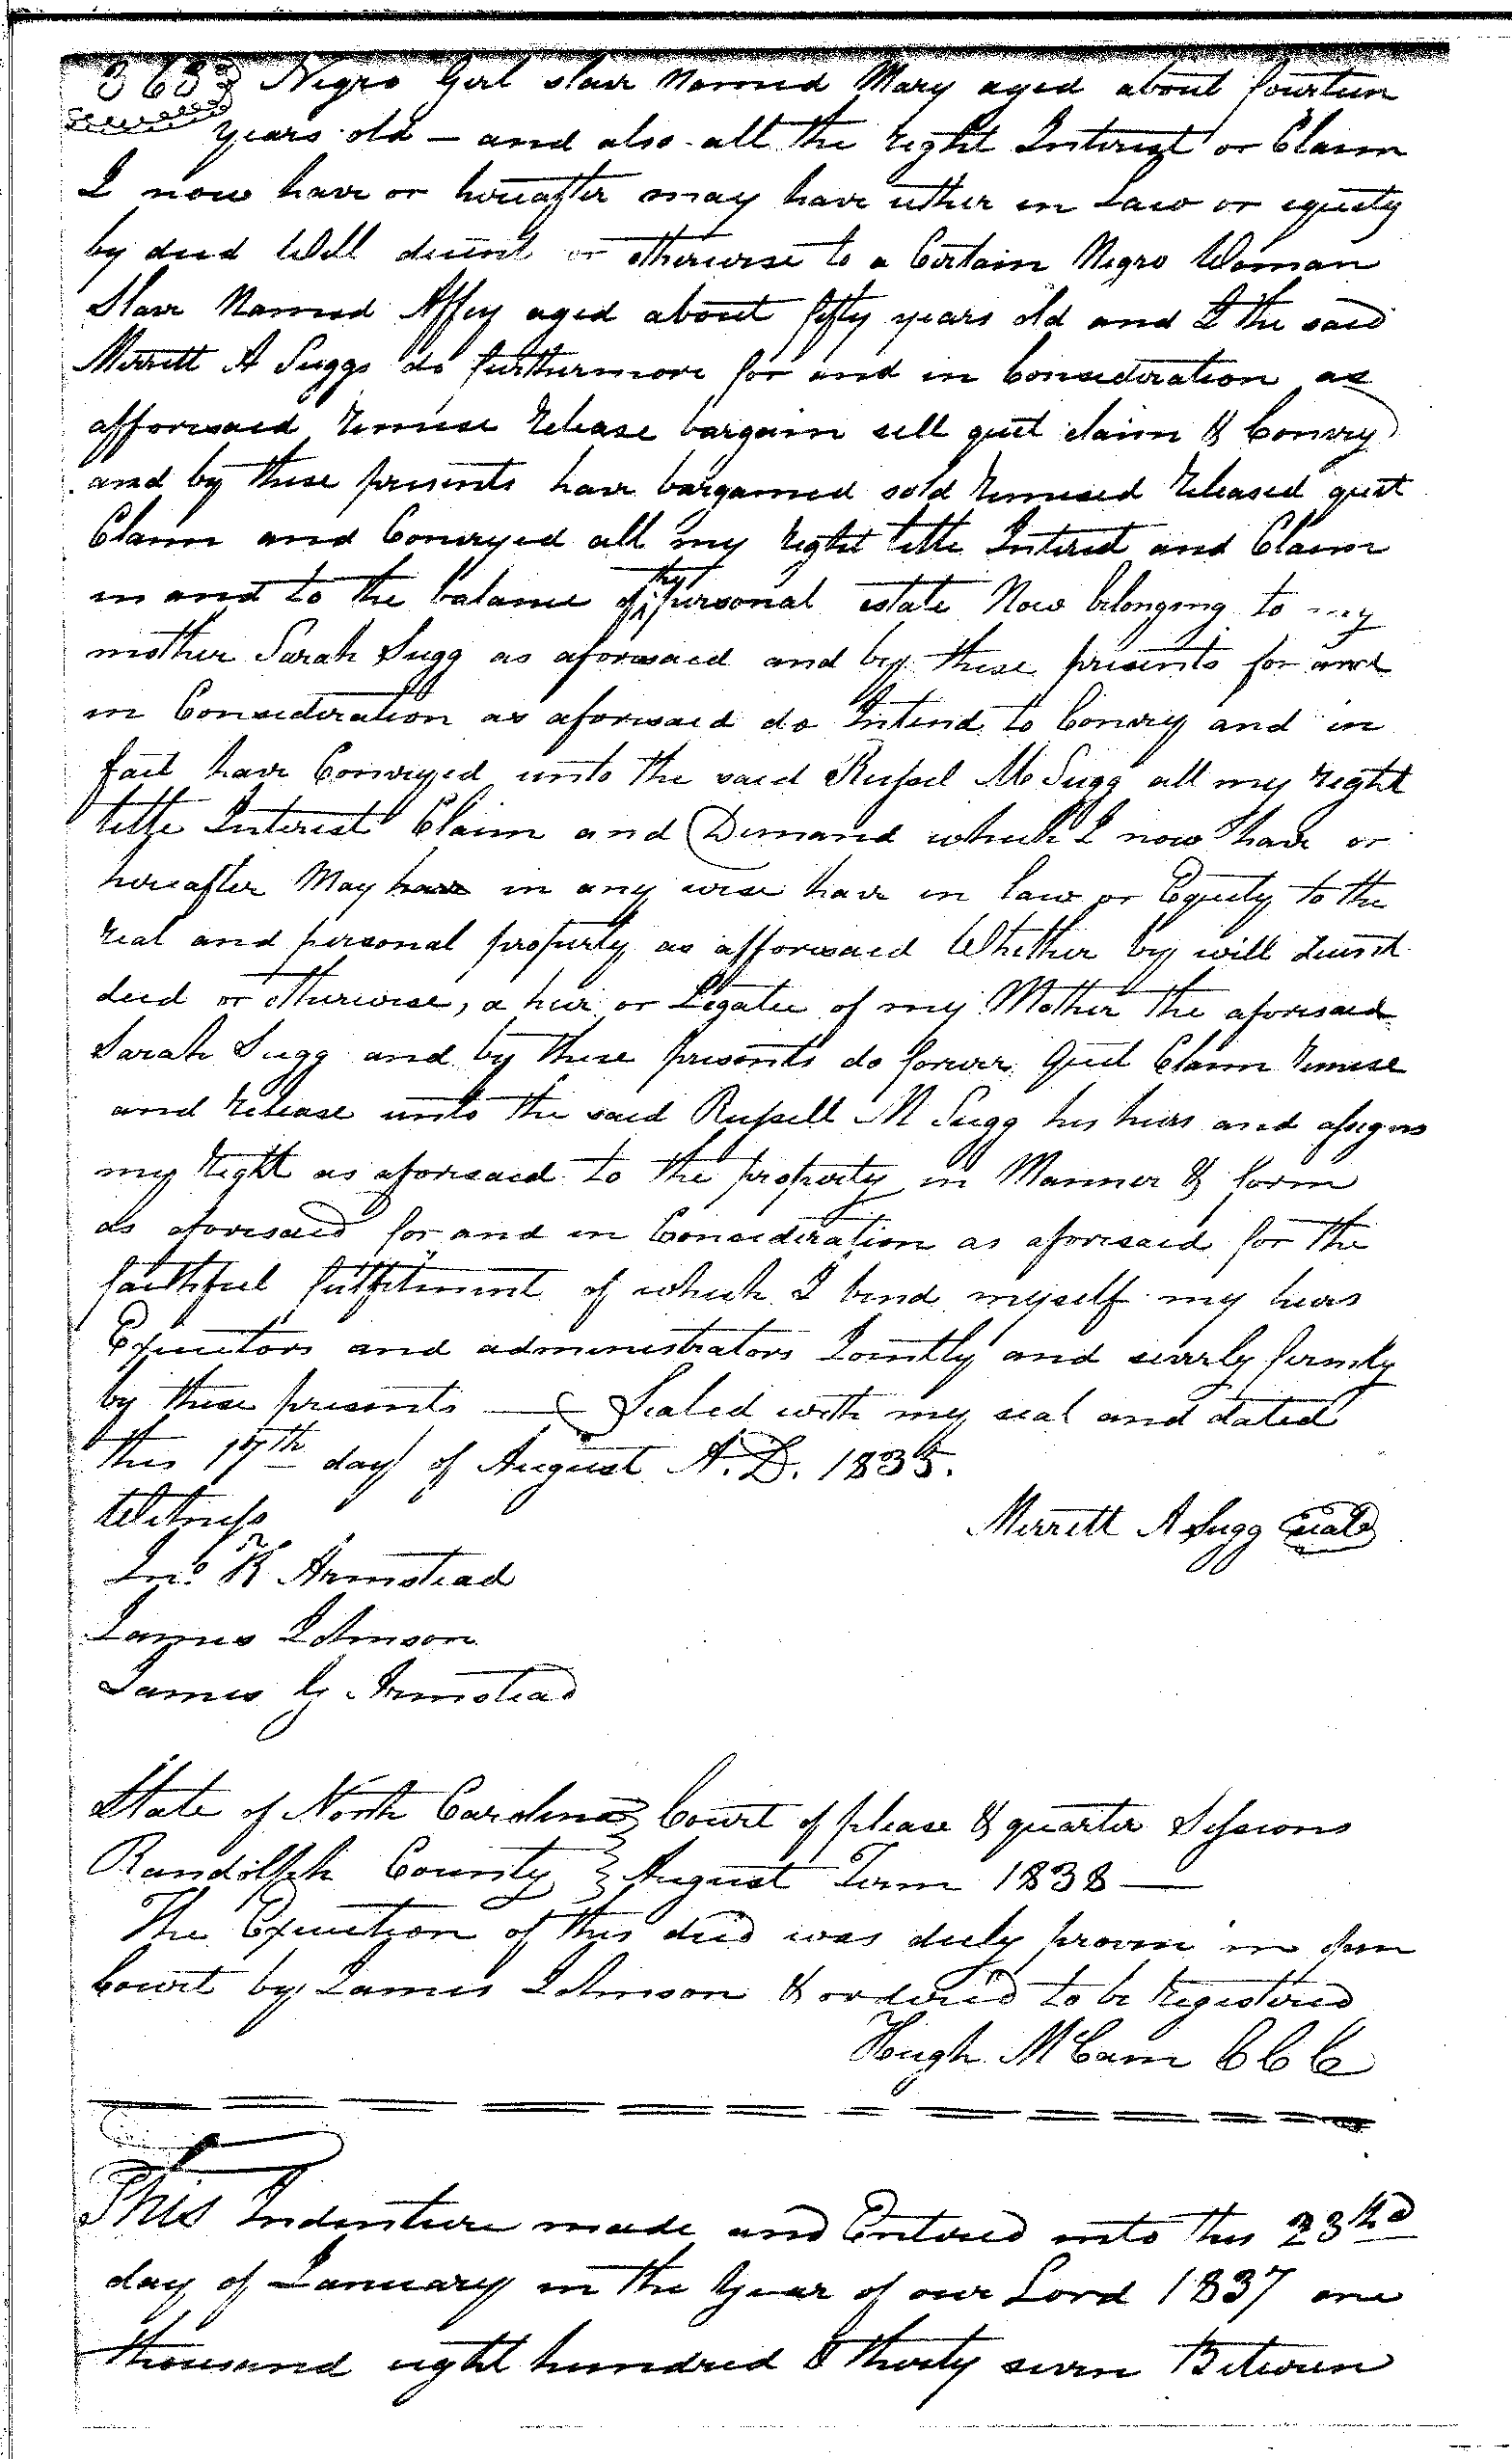 363 Negro Girl slave Named Mary aged about fourteen
years old – and also all the right Interest or Claim
I now have or hereafter may have either in Law or equity
by deed Will decent or otherwise to a Certain Negro Woman
Slave Named Affey aged about fifty years old and I the said
Merrett A Suggs do furthermore for and in Consideration as
afforesaid remise release bargain sell quit claim & Convey
and by these presents have bargained sold remised released quit
Claim and Conveyed all my right title Interest and Claim
in and to the balance of the personal estate Now belonging to my
mother Sarah Sugg as aforesaid and by these presents for and
in Consideration as aforesaid do Intend to Convey and in
fact have Conveyed unto the said Russel M Sugg all my right
title Interest Claim and Demand which I now have or
hereafter May have in any wise have in law or Equity to the
real and personal property as afforesaid Whether by will decent
deed or otherwise, a heir or Legatee of my Mother the aforesaid
Sarah Sugg and by these presents do forever Quit Claim remise
and release unto the said Russell M Sugg his heirs and assigns
my right as aforesaid to the property in Manner & form
as aforesaid for and in Consideration as aforesaid for the
faithful fulfilment of which I bind myself my heirs
Executors and administrators Jointly and severly firmly
by these presents — Sealed with my seal and dated
this 17th day of August A.D. 1835.
Witness
Merrett A Sugg Seal
Jno. K Armstead
James Johnson
James G Armstead
State of North Carolina } Court of please & quarter Sessions
Randolph County } August Term 1838 —
The Execution of this deed was duly proven in open
Court by James Johnson & ordered to be registered
Hugh McCain C C C
This Indenture made and Entered into this 23rd
day of January in the Year of our Lord 1837 one
thousand eight hundred & thirty seven Between